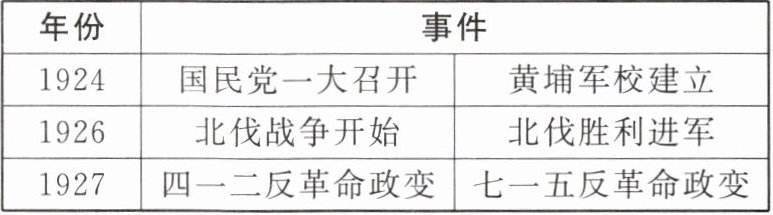 年份 事件
1924 国民党一大召开 黄埔军校建立
1926 北伐战争开始 北伐胜利进军
1927 四一二反革命政变 七一五反革命政变